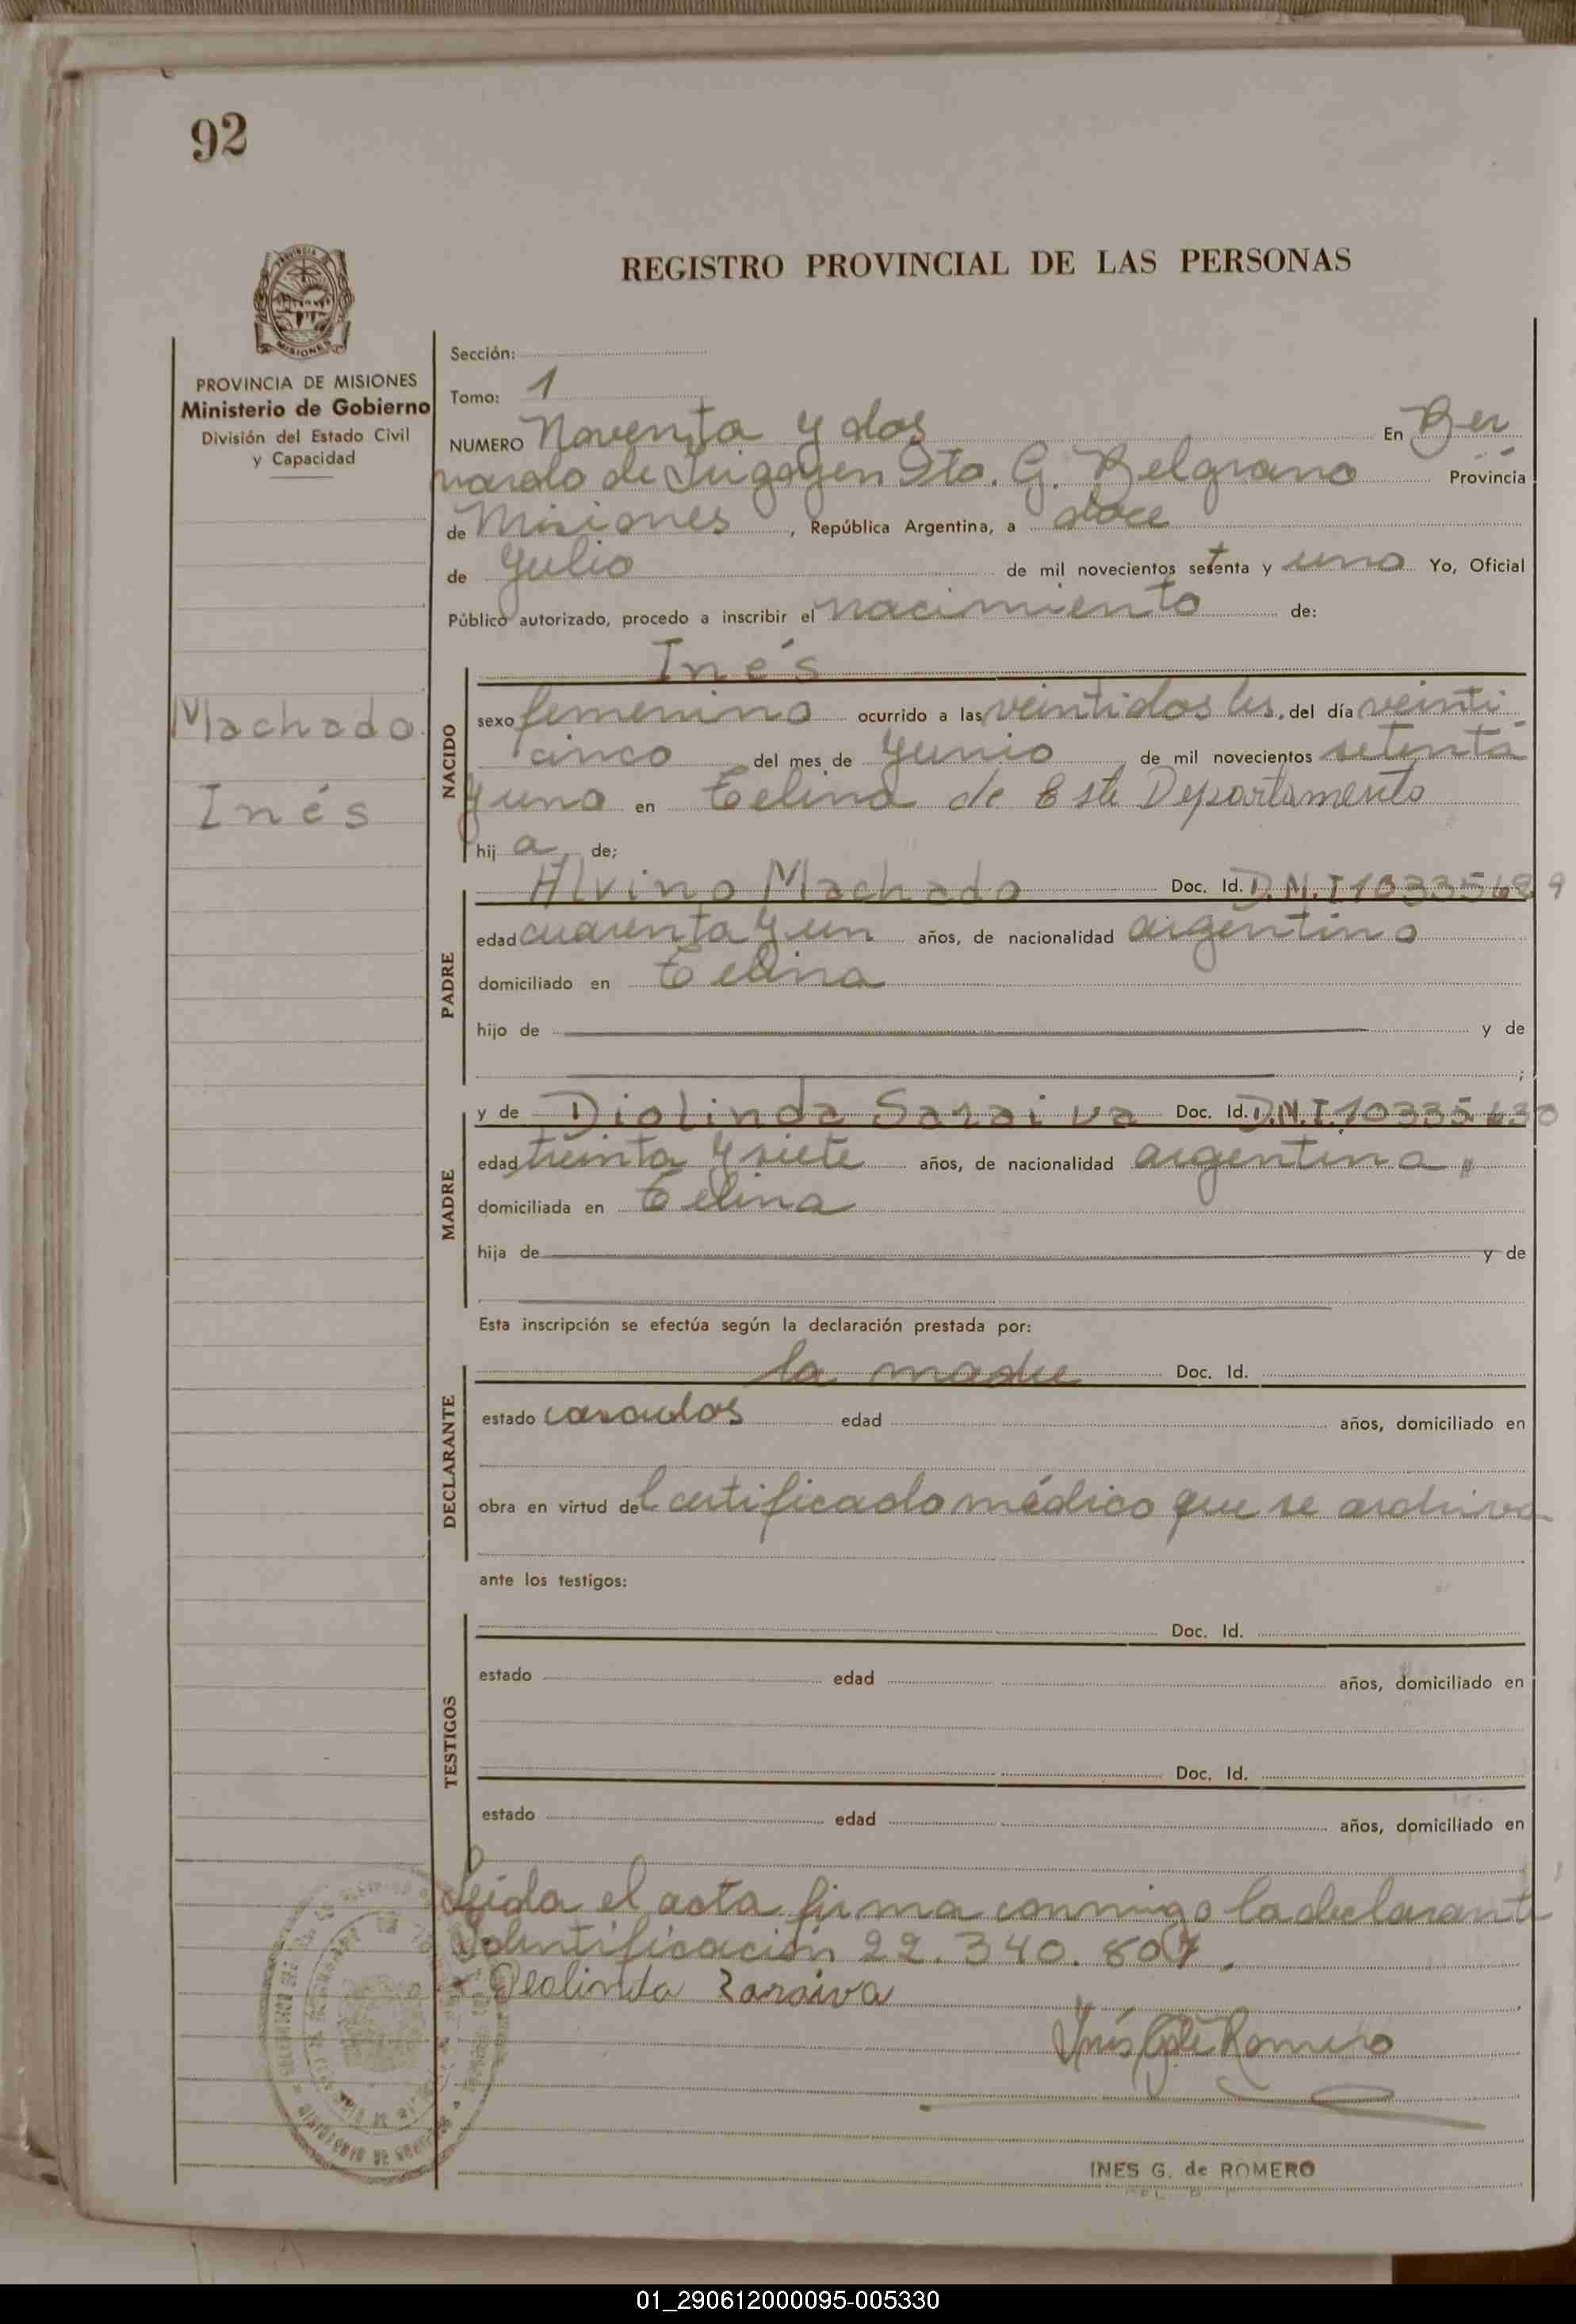 92
REGISTRO PROVINCIAL DE LAS PERSONAS
PROVINCIA DE MISIONES
Ministerio de Gobierno
División del Estado Civil
y Capacidad
Machado
Inés
Sección:
Tomo: 1
NUMERO Noventa y dos En Ber
nardo de Irigoyen Dto. G. Belgrano Provincia
de Misiones, República Argentina, a doce
de Julio de mil novecientos setenta y uno Yo, Oficial
Público autorizado, procedo a inscribir el nacimiento de:
Inés
NACIDO
sexo femenino ocurrido a las veintidos hs. del día veinti
cinco del mes de Junio de mil novecientos setenta
y uno en Celina de Este Departamento
hij a de;
PADRE
Alvino Machado Doc. Id. D.N.I 10335629
edad cuarenta y un años, de nacionalidad argentino
domiciliado en Celina
hijo de y de
;
MADRE
y de Diolinda Saraiva Doc. Id. D.N.I. 10335630
edad treinta y siete años, de nacionalidad argentina
domiciliada en Celina
hija de y de
Esta inscripción se efectúa según la declaración prestada por:
DECLARANTE
la madre Doc. Id.
estado casados edad años, domiciliado en
obra en virtud del certificado médico que se archiva
ante los testigos:
TESTIGOS
Doc. Id.
estado edad años, domiciliado en
Doc. Id.
estado edad años, domiciliado en
Leída el acta firma conmigo la declarante
Identificación 22.340.807.
Deolinda Zaraiva
Inés G. de Romero
INES G. de ROMERO
01_290612000095-005330